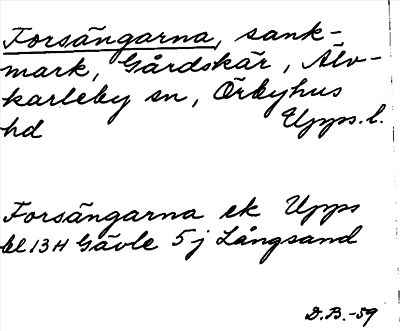 Forsängarna, sank-
mark, Gårdskär, Älv-
karleby sn, Örbyhus
hd Upps. l.
Forsängarna ek Upps
bl 13H Gävle 5 j Långsand
D.B. -59